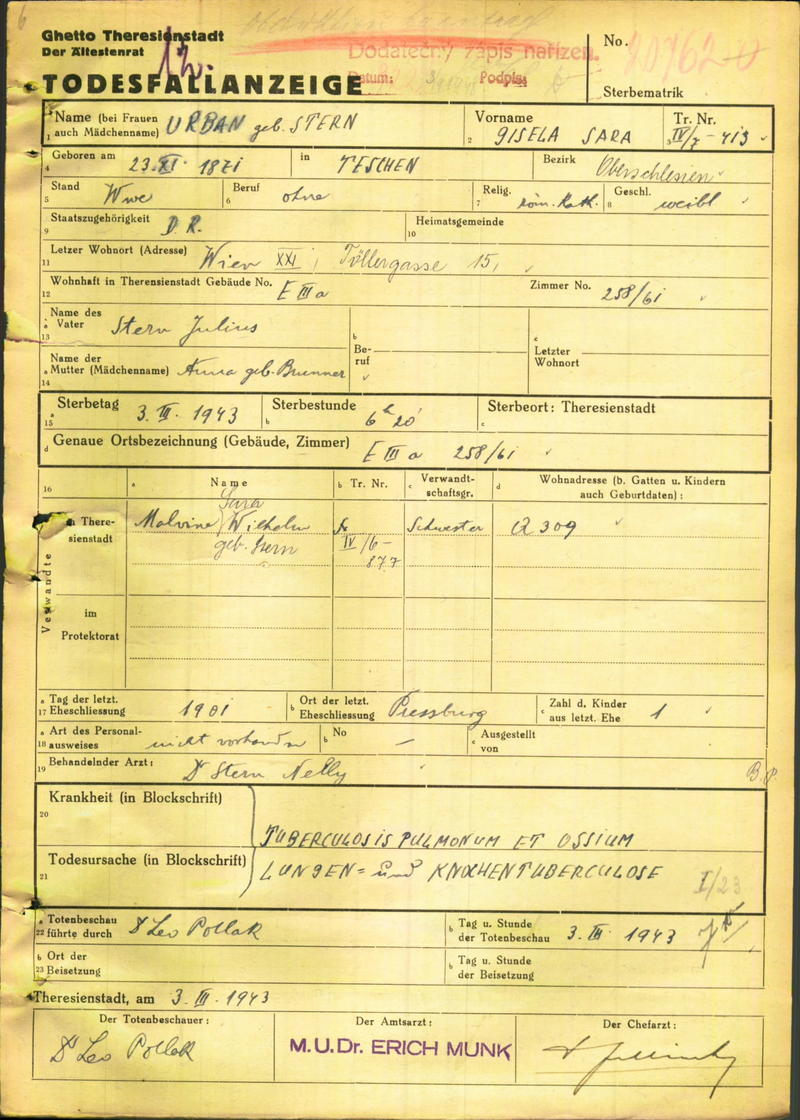 Ghetto Theresienstadt
Der Ältestenrat
TODESFALLANZEIGE
Dodatečný zápis nařízen.
Datum: 3 Podpis:
No.
Sterbematrik
Name (bei Frauen auch Mädchenname) URBAN geb. STERN
1
Vorname GISELA SARA
2
Tr. Nr. IV/7-413
3
Geboren am 23. XI. 1871
4
in TESCHEN
Bezirk Oberschlesien
Stand Wwe
5
Beruf ohne
6
Relig. röm. Kath.
7
Geschl. weibl
8
Staatszugehörigkeit D.R.
9
Heimatsgemeinde
10
Letzer Wohnort (Adresse) Wien XXI, Töllergasse 15,
11
Wohnhaft in Theresienstadt Gebäude No. E III a
12
Zimmer No. 258/61
Name des Vater Stern Julius
a 13
b Beruf
c Letzter Wohnort
Name der Mutter (Mädchenname) Anna geb. Brunner
a 14
Sterbetag 3. III. 1943
a 15
Sterbestunde 6h 20'
b
Sterbeort: Theresienstadt
c
d Genaue Ortsbezeichnung (Gebäude, Zimmer) E III a 258/61
16
a Name
b Tr. Nr.
c Verwandtschaftsgr.
d Wohnadresse (b. Gatten u. Kindern auch Geburtdaten):
Verwandte
in Theresienstadt
Sara
Malvine Wilhelm
geb. Stern
IV/6-
877
Schwester
Q 309
im Protektorat
a Tag der letzt. Eheschliessung 1901
17
b Ort der letzt. Eheschliessung Pressburg
c Zahl d. Kinder aus letzt. Ehe 1
a Art des Personalausweises nicht vorhanden
18
b No –
c Ausgestellt von
Behandelnder Arzt: Dr Stern Nelly
19
Krankheit (in Blockschrift)
20
TUBERCULOSIS PULMONUM ET OSSIUM
Todesursache (in Blockschrift)
21
LUNGEN= und KNOCHENTUBERCULOSE
I/23
a Totenbeschau führte durch Dr Leo Pollak
22
b Tag u. Stunde der Totenbeschau 3. III. 1943
b Ort der Beisetzung
23
b Tag u. Stunde der Beisetzung
Theresienstadt, am 3. III. 1943
Der Totenbeschauer:
Dr Leo Pollak
Der Amtsarzt:
M.U.Dr. ERICH MUNK
Der Chefarzt: